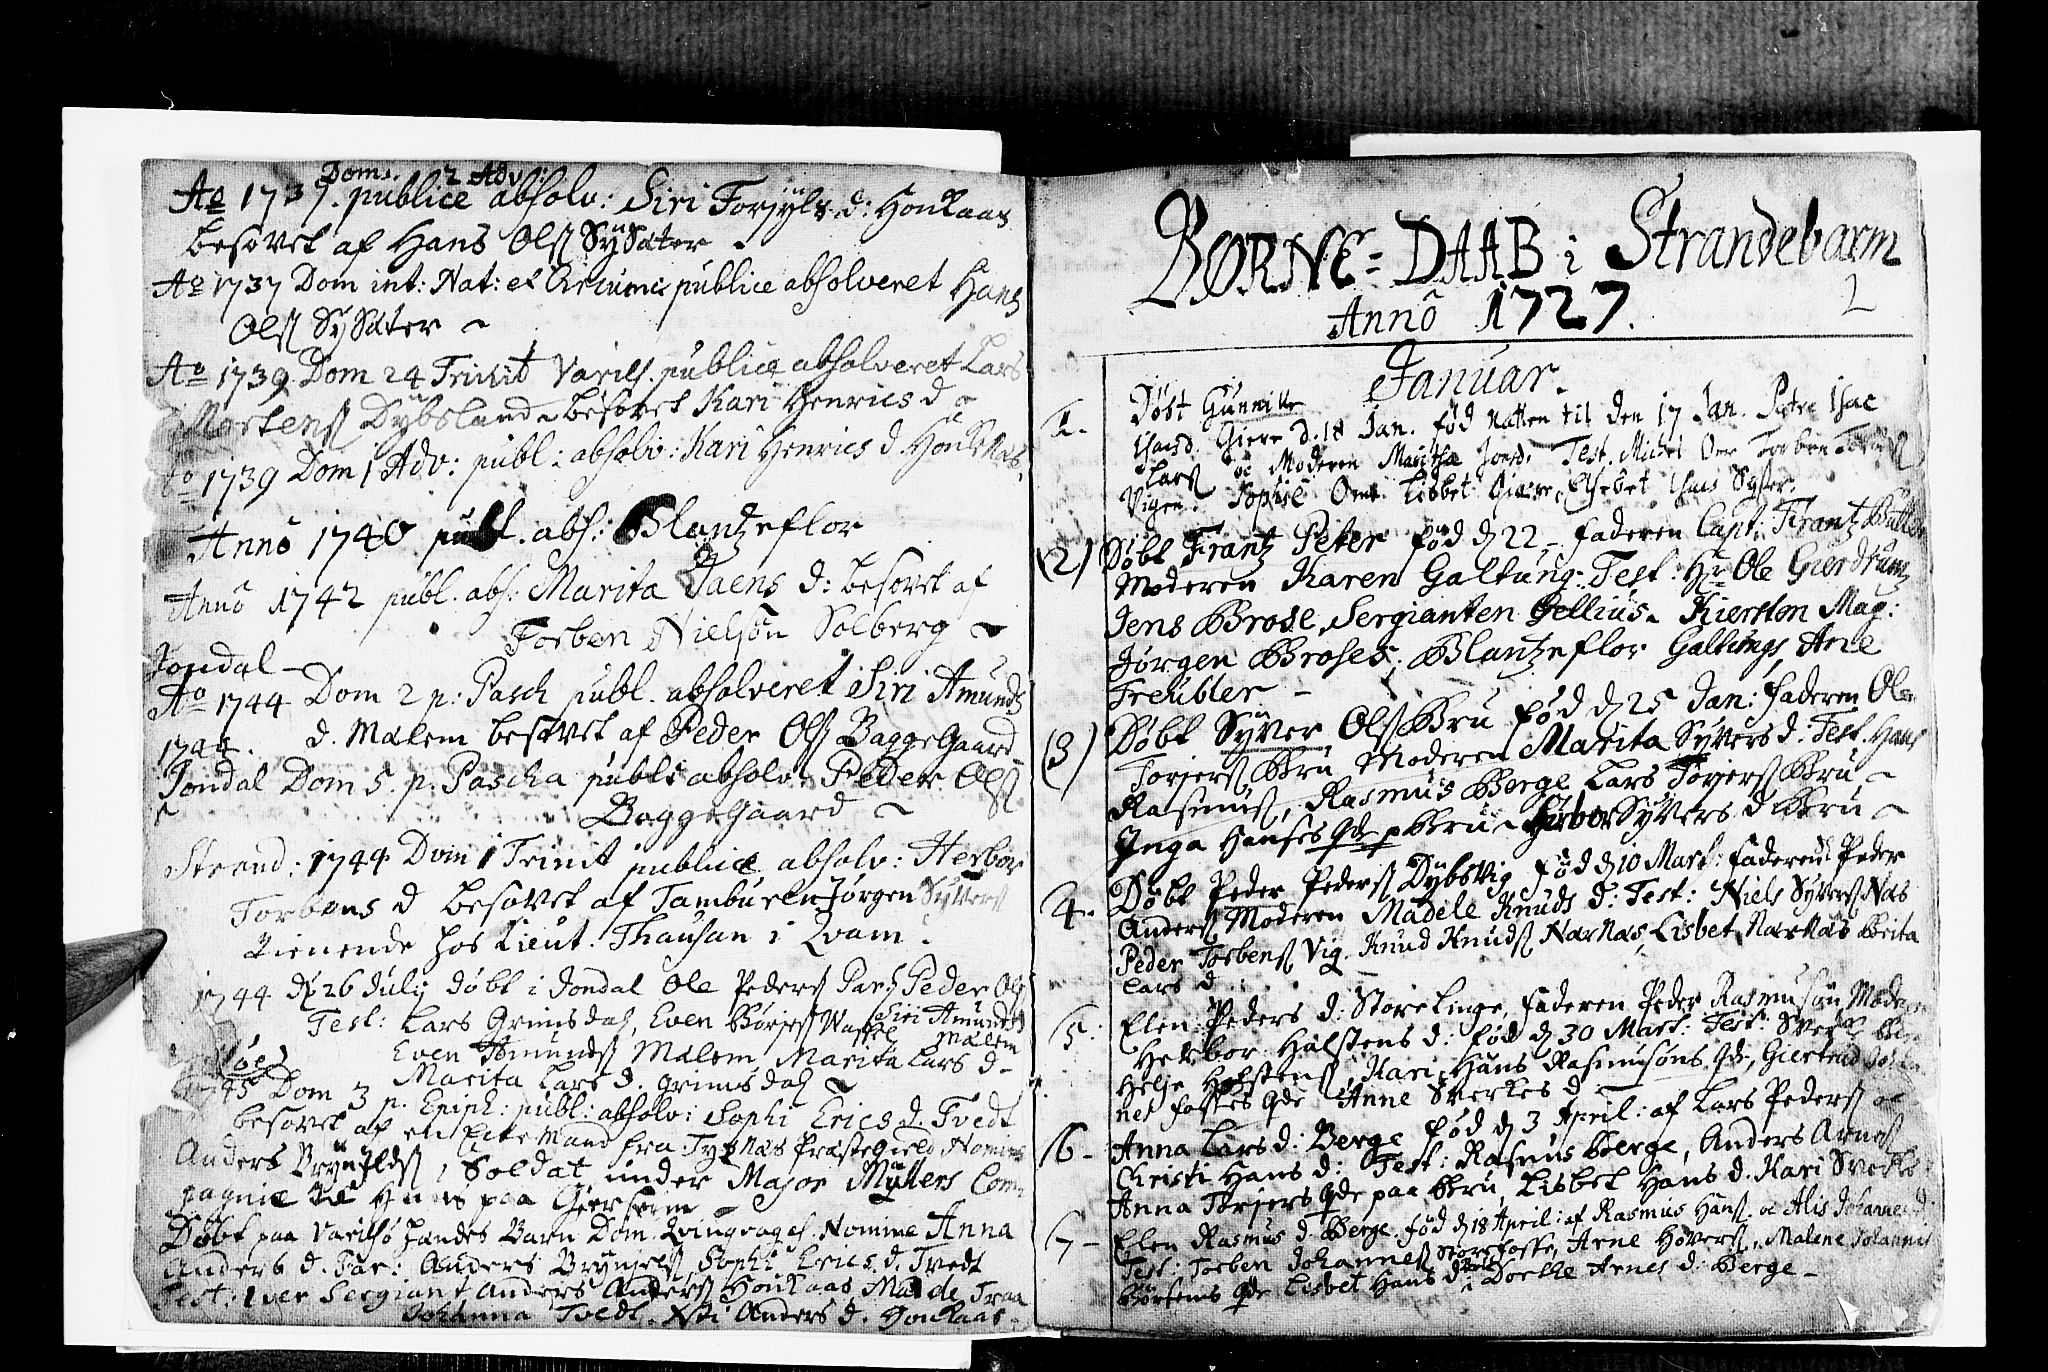 Doms. 2 Adv:
Ao 1737. publice absolv: Siri Torjyls d: Honkaas
besovet af Hans Ols SySæter
Ao 1737 Dom int: Nat: et Circumc publice absolveret Hans
Ols SySæter
Ao 1739 Dom 24 Trinit Varils. publice absolveret Lars
Mortens Dybsland besovet Kari Henrics d
Ao 1739 Dom 1 Adv: publ: absolv: Kari Henrics d. Honkaas
Anno 1740 publ. abs: Blantzeflor
Anno 1742 publ. abs: Marita Jaens d: besovet af
Torben Nielsøn Solberg
Jondal
Ao 1744 Dom 2 p: Pasch publ. absolveret Siri Amunds
d. Malem besovet af Peder Ols BaggeGaard
1744.
Jondal Dom 5. p. Pascha publ: absolv: Peder Ols
BaggeGaard
Strand: 1744 Dom 1 Trinit publice absolv: Herbor
Torbens d besovet af Tambueren Jørgen Syvers
tienende hos Lieut. Thausan i Qvam.
1744 d 26 July døbt i Jondal Ole Peders Par: Peder Ols
Siri Amunds d
Test: Lars Grimsdal, Even Børses Malem
Even Amunds Malem Marita Lars d
Marita Lars d. Grimsdal
1745 Dom 3 p. Epiph: publ: absolv: Sophi Erics d. Tvedt
besovet af en Ecte Mand fra Tysnæs Præstegield Nomine
Anders Brynjlds, Soldat under Major Müllers Com-
pagnie paa
Døbt paa Varilsø Hendes Barn Dom. Qvinqvages. Nomine Anna
Anders d. Far: Anders Brynjels Sophi Erics d. Tvedt
Test: Iver Sergiant Anders Anders Honkaas Made Traa
Johanna Tvedt. Xsti Anders d. Honkaas
BØRNE=DAAB i Strandebarm
2
Anno 1727.
Januar.
1. Døbt Gunnike
Giere d. 18 Jan. fød Natten til den 17 Jan. Isac
Lars oc Moderen Maritha Joensd. Test. Michel Torben
Vigen. Sophie Lisbet Giære, Elsebet Syster.
(2) Døbt Frantz Peter fød d 22 Faderen Capt: Frantz Bütler
Moderen Karen Galtung: Test: Hr Ole Gierdrum
Jens Brose, Sergianten Gellius. Kiersten Mag:
Jørgen Broses, Blantzeflor Galtungs, Ane
Treubler
(3) Døbt Syver Ols Bru fød d 25 Jan: Faderen Ole
Torjers Bru Moderen Marita Syvers d. Test. Hans
Rasmus, Rasmus Berge Lars Torjers Bru
Inga Hanses Qde p Bru Herbor Syvers d Bru
4. Døbt Peder Peders Dybsvig fød d 10 Mart: Faderen Peder
Anders Moderen Madele Knuds d: Test: Niels Syvers Næs
Peder Torbens Vig. Knud Knuds Nærnæs, Lisbet Nærnæs Brita
Lars d
5. Elen Peders d: StoreLinge, Faderen Peder Rasmusøn Moderen
Herbor Halstens d: fød d 30 Mart: Test:
Helje Holstens, Kari Hans Rasmusøns Qde, Giertrud
Fosses Qde Anne Sverkes d
6 Anna Lars d: Berge fød d 3 April: af Lars Peders oc
Christi Hans d: Test: Rasmus Berge, Anders Arnes
Anna Torjers Qde paa Bru, Lisbet Hans d. Kari
7 Elen Rasmus d Berge. fød d 18 April: af Rasmus Hans oc Alis Johannes d.
Test: Torben Johannes StoreFosse, Arne Hovers, Malene Johannis
Qde Lisbet Hans d: Dorthe Arnes d: Berge